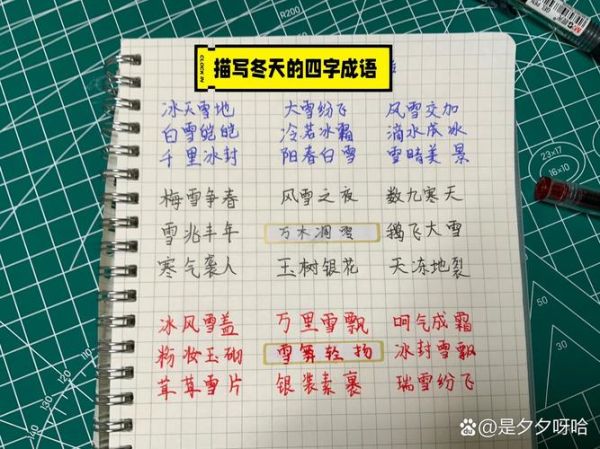 描写冬天的四字成语
CLOCK IN
冰天雪地 大雪纷飞 风雪交加
白雪皑皑 冷若冰霜 滴水成冰
千里冰封 阳春白雪 雪晴美景
梅雪争春 风雪之夜 数九寒天
雪兆丰年 万木凋零 鹅飞大雪
寒气袭人 玉树银花 天冻地裂
冰风雪盖 万里雪飘 呵气成霜
粉妆玉砌 雪舞轻扬 冰封雪飘
茸茸雪片 银装素裹 瑞雪纷飞
R200
23×17
16×10
@是夕夕呀哈